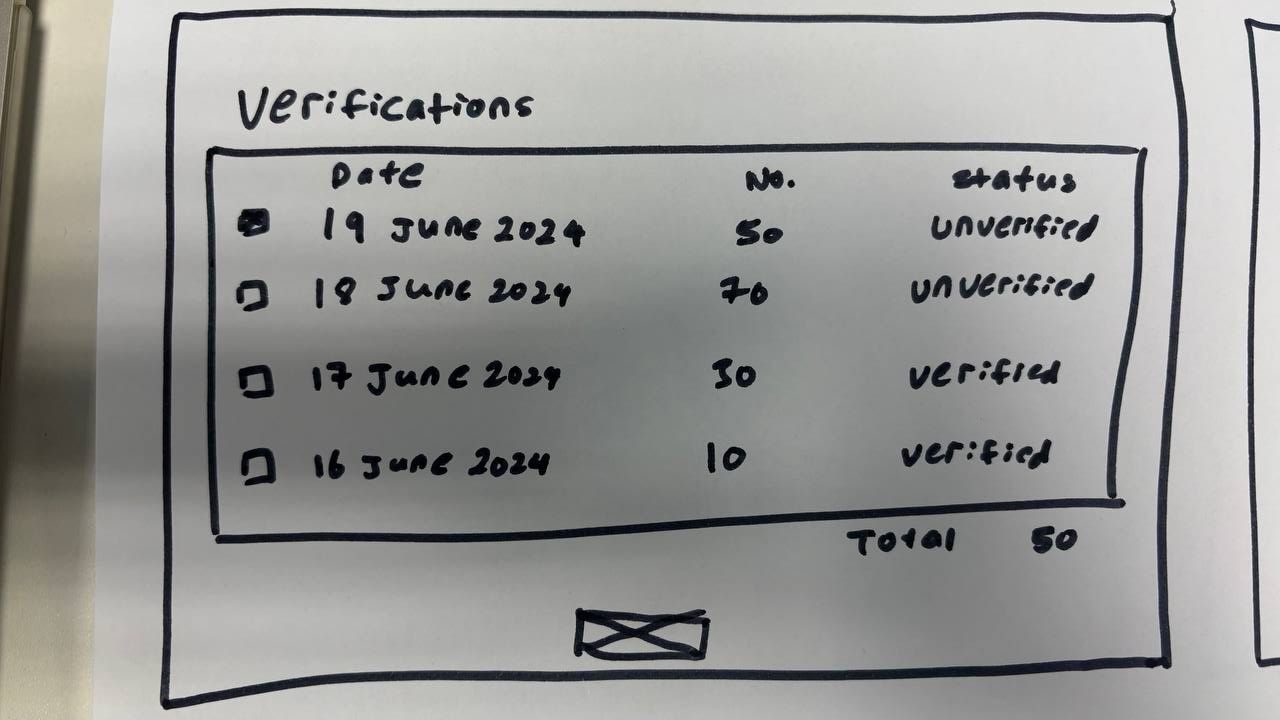 Verifications
Date No. Status
19 June 2024 50 unverified
18 June 2024 70 unverified
17 June 2024 30 verified
16 June 2024 10 verified
Total 50